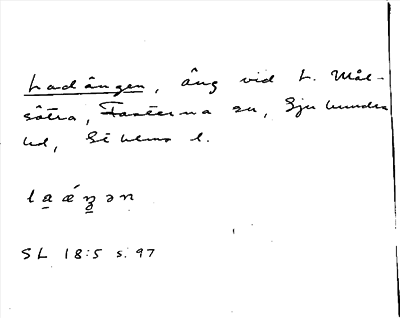 Ladängen, äng vid L. Mål-
sätra, Fasterna sn, Sjuhundra
hd, Sthlms l.
SL 18:5 s. 97